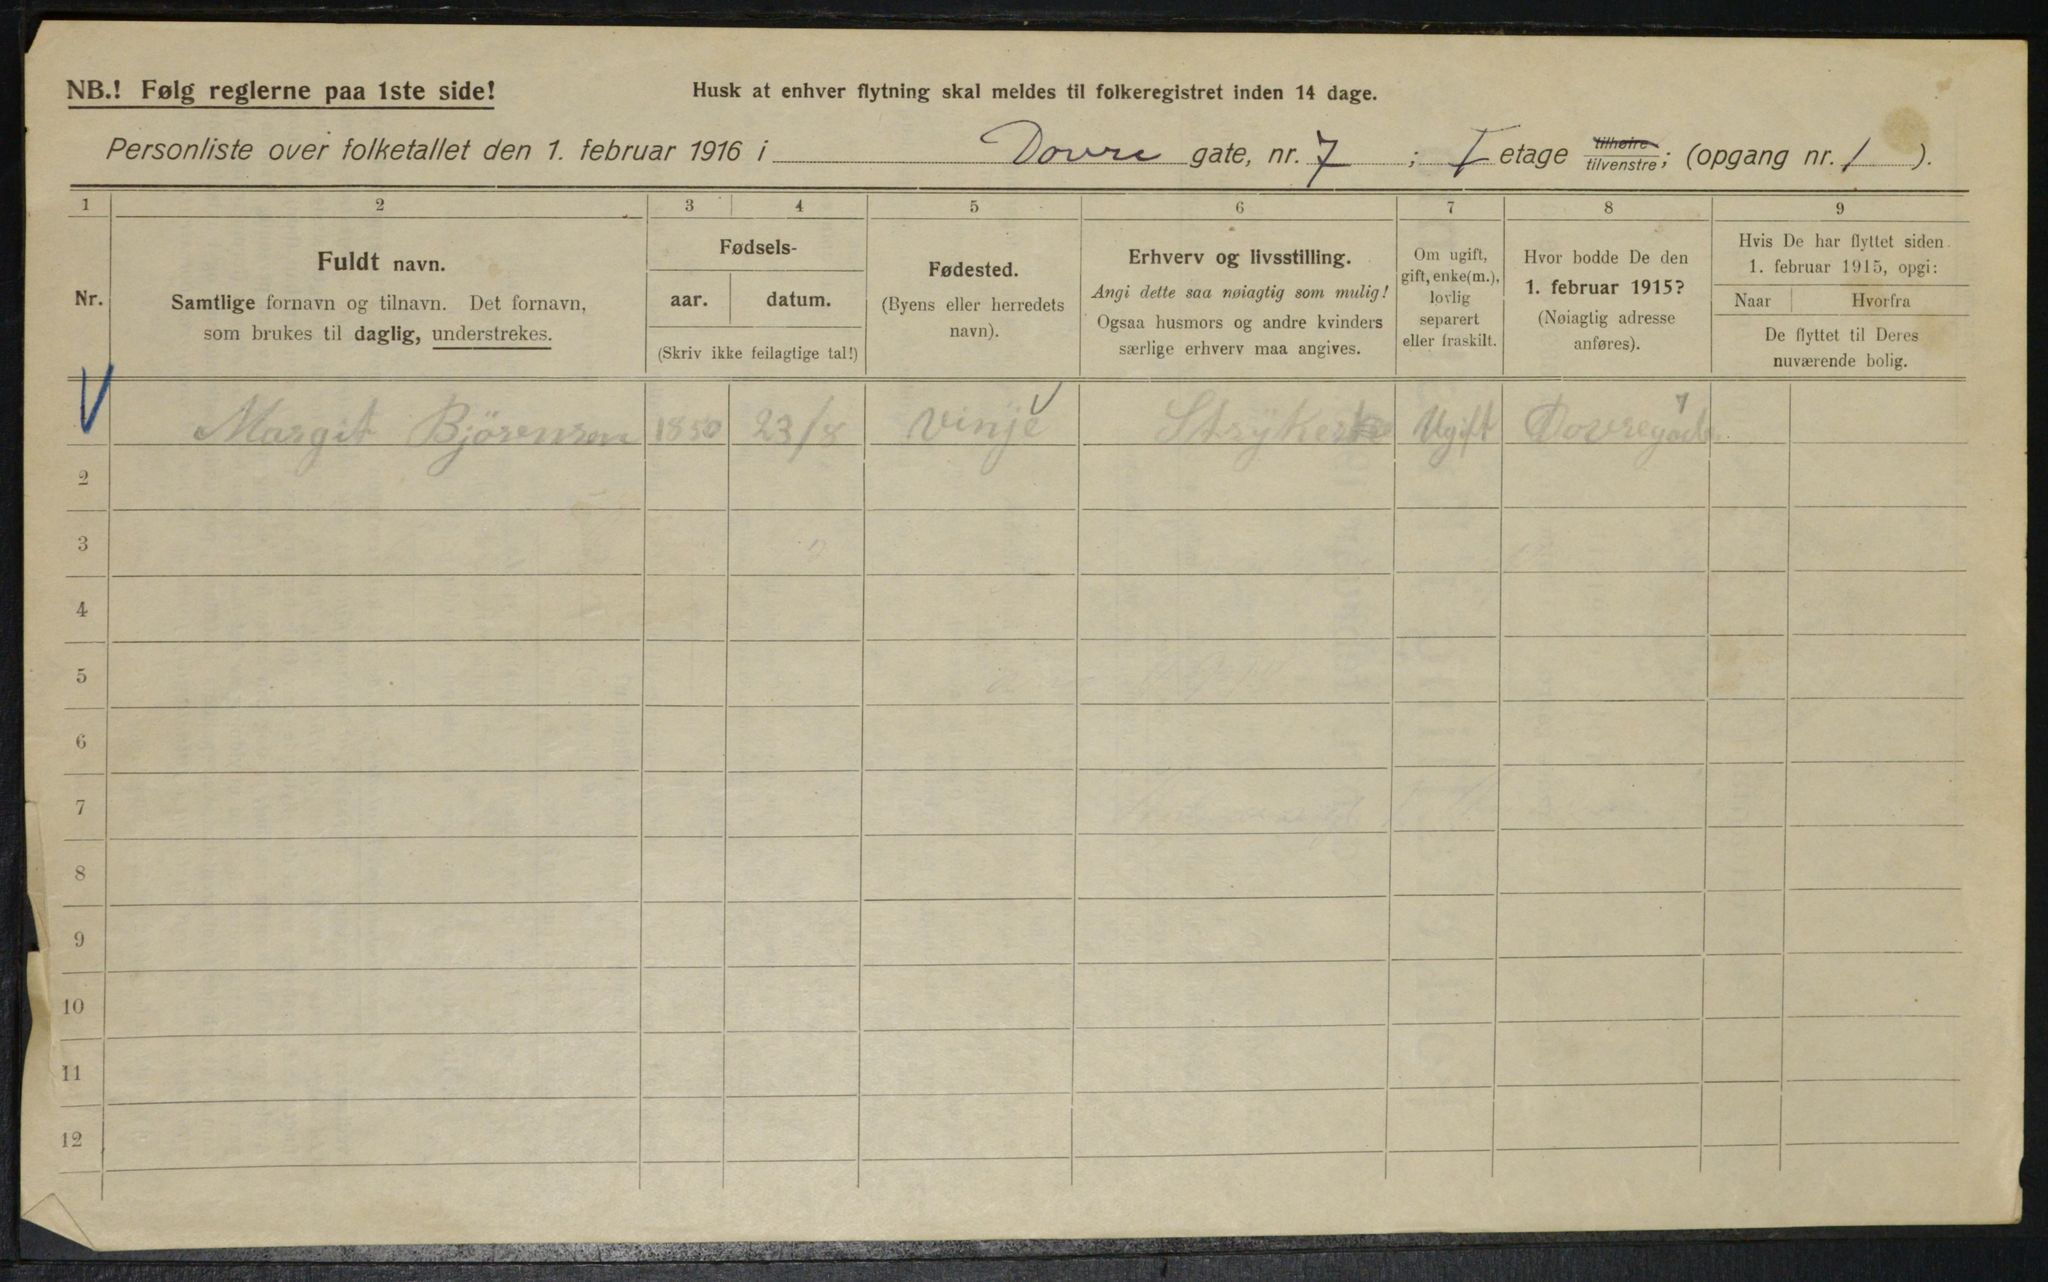 NB.! Følg reglerne paa 1ste side!
Husk at enhver flytning skal meldes til folkeregistret inden 14 dage.
Personliste over folketallet den 1. februar 1916 i Dovre gate, nr. 7 ; I etage tilhøire tilvenstre; (opgang nr. 1 ).
1 2 3 4 5 6 7 8 9
Nr.
Fuldt navn.
Samtlige fornavn og tilnavn. Det fornavn,
som brukes til daglig, understrekes.
Fødsels-
aar. datum.
(Skriv ikke feilagtige tal!)
Fødested.
(Byens eller herredets
navn).
Erhverv og livsstilling.
Angi dette saa nøiagtig som mulig!
Ogsaa husmors og andre kvinders
særlige erhverv maa angives.
Om ugift,
gift, enke(m.),
lovlig
separert
eller fraskilt.
Hvor bodde De den
1. februar 1915?
(Nøiagtig adresse
anføres).
Hvis De har flyttet siden
1. februar 1915, opgi:
Naar Hvorfra
De flyttet til Deres
nuværende bolig.
Margit Bjørensen 1850 23/8 Vinje Strykerske Ugift 7
2
3
4
5
6
7
8
9
10
11
12